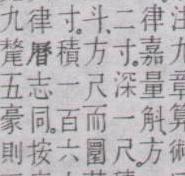 注九章算術
律嘉量斛、方
二寸。深一尺。
斗、方尺而圜
寸。積一百六
律曆志同。按
九氂五豪則